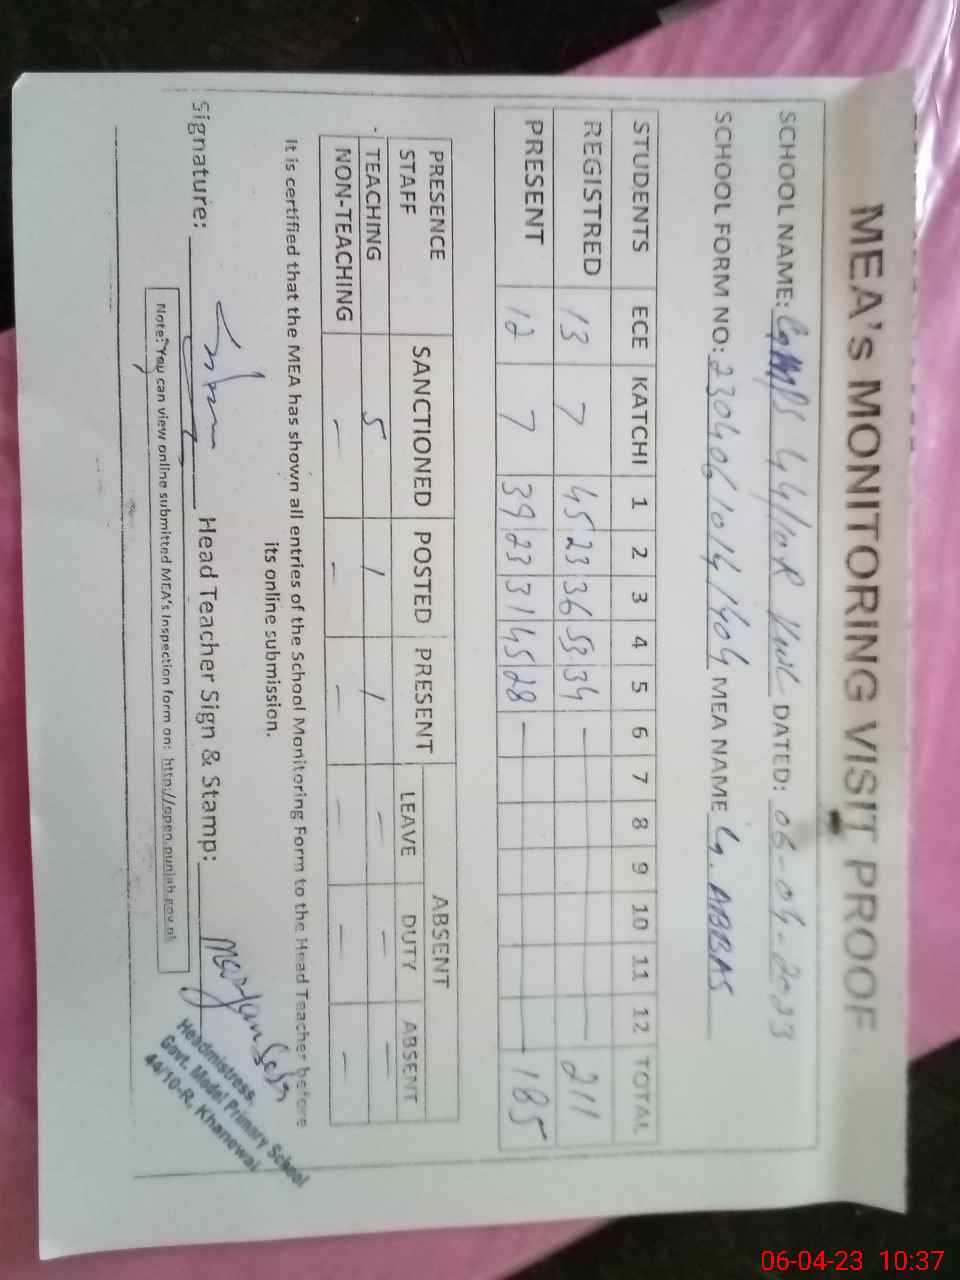 MEA's MONITORING VISIT PROOF
SCHOOL NAME: GMPS 44/10R KWL DATED: 06-04-2023
SCHOOL FORM NO: 230406/1014/1404 MEA NAME G. ABBAS
STUDENTS ECE KATCHI 1 2 3 4 5 6 7 8 9 10 11 12 TOTAL
REGISTRED 13 7 45 23 36 53 34 — 211
PRESENT 12 7 39 23 31 45 28 — 185
PRESENCE STAFF SANCTIONED POSTED PRESENT ABSENT
LEAVE DUTY ABSENT
TEACHING 5 1 1 — — —
NON-TEACHING — — — — — —
It is certified that the MEA has shown all entries of the School Monitoring Form to the Head Teacher before
its online submission.
Signature: Head Teacher Sign & Stamp:
Headmistress,
Govt. Model Primary School
44/10-R, Khanewal
Note: You can view online submitted MEA's Inspection form on: http://open.punjab.gov.pk
06-04-23 10:37